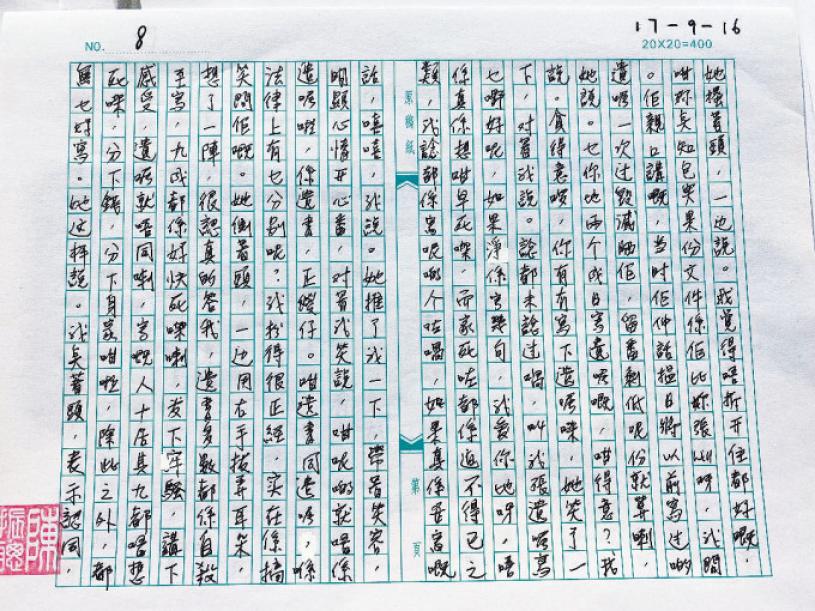 17-9-16
20X20=400
NO. 8
她搔着頭，一边説。我覺得唔拆开住都好嘅，
咁你矣知包哭果份文件係佢比妳張山呀，我問
。佢親口講嘅，当时佢仲話揾日將以前寫过啲
遺唔一次过毀滅晒佢，留番剩低呢份就算喇，
她説。也你地两个成日寫遺唔嘅咩，咁得意？我
説。貪得意啖，你有冇寫下遺唔，她笑了一
下，对着我説。諗都未諗过喎，叫我張遺唔寫
乜嘢好呢，如果淨係寫幾句，我愛你地呀，唔
係真係想咁早死㗎，而家死咗都係逼不得已之
類，我諗都係寫呢啲个咕喎，如果真係吾寫嘅
原稿紙
第 頁
話，嘻嘻，我説。她推了我一下，帶着笑容，
明顯心情开心番，对着我笑説，咁呢啲就唔係
遺唔啦，係遺書，正傻仔。咁遺書同遺唔，係
法律上有乜分別呢？我扮得很正經，实在係搞
笑問佢嘅。她側着頭，一边用右手拔弄耳朵，
想了一陣，很認真的答我，遺書多數都係自殺
至寫，九成都係好快死㗎喇，发下牢騷，講下
感受，遺唔就唔同喇，寫嘅人十居其九都唔想
死㗎，分下錢，分下身家咁啦，除此之外，都
無乜好寫。她这样説。我矣着頭，表示認同，